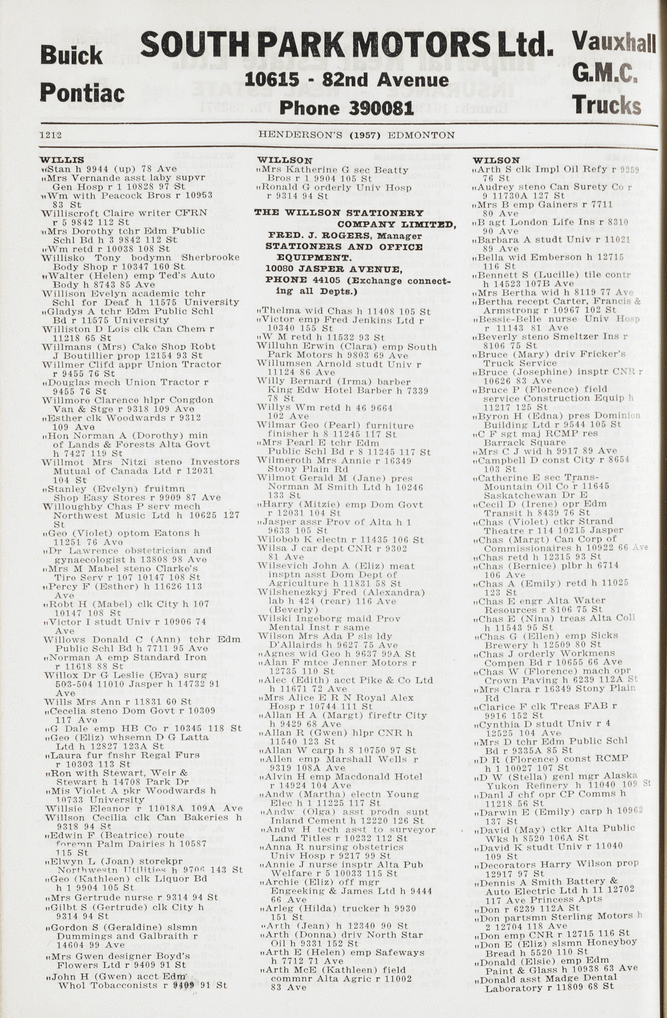 Buick
Pontiac
SOUTH PARK MOTORS Ltd.
10615 - 82nd Avenue
Phone 390081
Vauxhall
G.M.C.
Trucks
1212
HENDERSON'S (1957) EDMONTON
WILLIS
„Stan h 9944 (up) 78 Ave
„Mrs Vernande asst laby supvr
Gen Hosp r 1 10828 97 St
„Wm with Peacock Bros r 10953
83 St
Williscroft Claire writer CFRN
r 5 9842 112 St
„Mrs Dorothy tchr Edm Public
Schl Bd h 3 9842 112 St
„Wm retd r 10038 108 St
Willisko Tony bodymn Sherbrooke
Body Shop r 10347 160 St
„Walter (Helen) emp Ted's Auto
Body h 8743 85 Ave
Willison Evelyn academic tchr
Schl for Deaf h 11575 University
„Gladys A tchr Edm Public Schl
Bd r 11575 University
Williston D Lois clk Can Chem r
11218 65 St
Willmans (Mrs) Cake Shop Robt
J Boutillier prop 12154 93 St
Willmer Clifd appr Union Tractor
r 9455 76 St
„Douglas mech Union Tractor r
9455 76 St
Willmore Clarence hlpr Congdon
Van & Stge r 9318 109 Ave
„Esther clk Woodwards r 9312
109 Ave
„Hon Norman A (Dorothy) min
of Lands & Forests Alta Govt
h 7427 119 St
Willmot Mrs Nitzi steno Investors
Mutual of Canada Ltd r 12031
104 St
„Stanley (Evelyn) fruitmn
Shop Easy Stores r 9909 87 Ave
Willoughby Chas P serv mech
Northwest Music Ltd h 10625 127
St
„Geo (Violet) optom Eatons h
11251 76 Ave
„Dr Lawrence obstetrician and
gynaecologist h 13808 98 Ave
„Mrs M Mabel steno Clarke's
Tire Serv r 107 10147 108 St
„Percy F (Esther) h 11626 113
Ave
„Robt H (Mabel) clk City h 107
10147 108 St
„Victor I studt Univ r 10906 74
Ave
Willows Donald C (Ann) tchr Edm
Public Schl Bd h 7711 95 Ave
„Norman A emp Standard Iron
r 11618 88 St
Willox Dr G Leslie (Eva) surg
503-504 11010 Jasper h 14732 91
Ave
Wills Mrs Ann r 11831 60 St
„Cecelia steno Dom Govt r 10309
117 Ave
„G Dale emp HB Co r 10345 118 St
„Geo (Eliz) whsemn D G Latta
Ltd h 12827 123A St
„Laura fur fnshr Regal Furs
r 10303 113 St
„Ron with Stewart, Weir &
Stewart h 14708 Park Dr
„Mis Violet A pkr Woodwards h
10733 University
Willsie Eleanor r 11018A 109A Ave
Willson Cecilia clk Can Bakeries h
9318 94 St
„Edwin F (Beatrice) route
foremn Palm Dairies h 10587
115 St
„Elwyn L (Joan) storekpr
Northwestn Utilities h 9706 143 St
„Geo (Kathleen) clk Liquor Bd
h 1 9904 105 St
„Mrs Gertrude nurse r 9314 94 St
„Gilbt S (Gertrude) clk City h
9314 94 St
„Gordon S (Geraldine) slsmn
Dummings and Galbraith r
14604 99 Ave
„Mrs Gwen designer Boyd's
Flowers Ltd r 9409 91 St
„John H (Gwen) acct Edm
Whol Tobacconists r 9409 91 St
WILLSON
„Mrs Katherine G sec Beatty
Bros r 1 9904 105 St
„Ronald G orderly Univ Hosp
r 9314 94 St
THE WILLSON STATIONERY
COMPANY LIMITED,
FRED. J. ROGERS, Manager
STATIONERS AND OFFICE
EQUIPMENT.
10080 JASPER AVENUE,
PHONE 44105 (Exchange connect-
ing all Depts.)
„Thelma wid Chas h 11408 105 St
„Victor emp Fred Jenkins Ltd r
10340 155 St
„W M retd h 11532 93 St
Willuhn Erwin (Clara) emp South
Park Motors h 9803 69 Ave
Willumsen Arnold studt Univ r
11124 86 Ave
Willy Bernard (Irma) barber
King Edw Hotel Barber h 7339
78 St
Willys Wm retd h 46 9664
102 Ave
Wilmar Geo (Pearl) furniture
finisher h 8 11245 117 St
„Mrs Pearl E tchr Edm
Public Schl Bd r 8 11245 117 St
Wilmeroth Mrs Annie r 16349
Stony Plain Rd
Wilmot Gerald M (Jane) pres
Norman M Smith Ltd h 10246
133 St
„Harry (Mitzie) emp Dom Govt
r 12031 104 St
„Jasper assr Prov of Alta h 1
9633 105 St
Wilobob K electn r 11435 106 St
Wilsa J car dept CNR r 9302
81 Ave
Wilsevich John A (Eliz) meat
insptn asst Dom Dept of
Agriculture h 11831 58 St
Wilshenezkyj Fred (Alexandra)
lab h 424 (rear) 116 Ave
(Beverly)
Wilski Ingeborg maid Prov
Mental Inst r same
Wilson Mrs Ada P sls ldy
D'Allairds h 9627 75 Ave
„Agnes wid Geo h 9637 99A St
„Alan F mtce Jenner Motors r
12735 110 St
„Alec (Edith) acct Pike & Co Ltd
h 11671 72 Ave
„Mrs Alice E R N Royal Alex
Hosp r 10744 111 St
„Allan H A (Margt) fireftr City
h 9429 68 Ave
„Allan R (Gwen) hlpr CNR h
11540 123 St
„Allan W carp h 8 10750 97 St
„Allen emp Marshall Wells r
9319 108A Ave
„Alvin H emp Macdonald Hotel
r 14924 104 Ave
„Andw (Martha) electn Young
Elec h 1 11225 117 St
„Andw (Olga) asst prodn supt
Inland Cement h 12220 126 St
„Andw H tech asst to surveyor
Land Titles r 10232 112 St
„Anna R nursing obstetrics
Univ Hosp r 9217 99 St
„Annie J nurse insptr Alta Pub
Welfare r 5 10033 115 St
„Archie (Eliz) off mgr
Engeeking & James Ltd h 9444
66 Ave
„Arleg (Hilda) trucker h 9930
151 St
„Arth (Jean) h 12340 90 St
„Arth (Donna) driv North Star
Oil h 9331 152 St
„Arth E (Helen) emp Safeways
h 7712 71 Ave
„Arth McE (Kathleen) field
commnr Alta Agric r 11002
83 Ave
WILSON
„Arth S clk Impl Oil Refy r 9359
76 St
„Audrey steno Can Surety Co r
9 11730A 127 St
„Mrs B emp Gainers r 7711
80 Ave
„B agt London Life Ins r 8310
90 Ave
„Barbara A studt Univ r 11021
89 Ave
„Bella wid Emberson h 12715
116 St
„Bennett S (Lucille) tile contr
h 14523 107B Ave
„Mrs Bertha wid h 8119 77 Ave
„Bertha recept Carter, Francis &
Armstrong r 10967 102 St
„Bessie-Belle nurse Univ Hosp
r 11143 81 Ave
„Beverly steno Smeltzer Ins r
8106 75 St
„Bruce (Mary) driv Fricker's
Truck Service
„Bruce (Josephine) insptr CNR r
10626 83 Ave
„Bruce P (Florence) field
service Construction Equip h
11217 125 St
„Byron H (Edna) pres Dominion
Building Ltd r 9544 105 St
„C F sgt maj RCMP res
Barrack Square
„Mrs C J wid h 9917 89 Ave
„Campbell D const City r 8654
103 St
„Catherine E sec Trans-
Mountain Oil Co r 11645
Saskatchewan Dr E
„Cecil D (Irene) opr Edm
Transit h 8439 76 St
„Chas (Violet) ctkr Strand
Theatre r 114 10215 Jasper
„Chas (Margt) Can Corp of
Commissionaires h 10922 66 Ave
„Chas retd h 12315 93 St
„Chas (Bernice) plbr h 6714
106 Ave
„Chas A (Emily) retd h 11025
123 St
„Chas E engr Alta Water
Resources r 8106 75 St
„Chas E (Nina) treas Alta Coll
h 11543 95 St
„Chas G (Ellen) emp Sicks
Brewery h 12509 80 St
„Chas J orderly Workmens
Compen Bd r 10655 66 Ave
„Chas W (Florence) mach opr
Crown Paving h 6239 112A St
„Mrs Clara r 16349 Stony Plain
Rd
„Clarice F clk Treas FAB r
9916 152 St
„Cynthia D studt Univ r 4
12525 104 Ave
„Mrs D tchr Edm Public Schl
Bd r 9335A 85 St
„D R (Florence) const RCMP
h 1 10027 107 St
„D W (Stella) genl mgr Alaska
Yukon Refinery h 11040 109 St
„Danl J chf opr CP Comms h
11218 56 St
„Darwin E (Emily) carp h 10962
137 St
„David (May) ctkr Alta Public
Wks h 8520 106A St
„David K studt Univ r 11040
109 St
„Decorators Harry Wilson prop
12917 97 St
„Dennis A Smith Battery &
Auto Electric Ltd h 11 12702
117 Ave Princess Apts
„Don r 6239 112A St
„Don partsmn Sterling Motors h
2 12704 118 Ave
„Don emp CNR r 12715 116 St
„Don E (Eliz) slsmn Honeyboy
Bread h 5520 110 St
„Donald (Elsie) emp Edm
Paint & Glass h 10938 63 Ave
„Donald asst Madge Dental
Laboratory r 11809 68 St